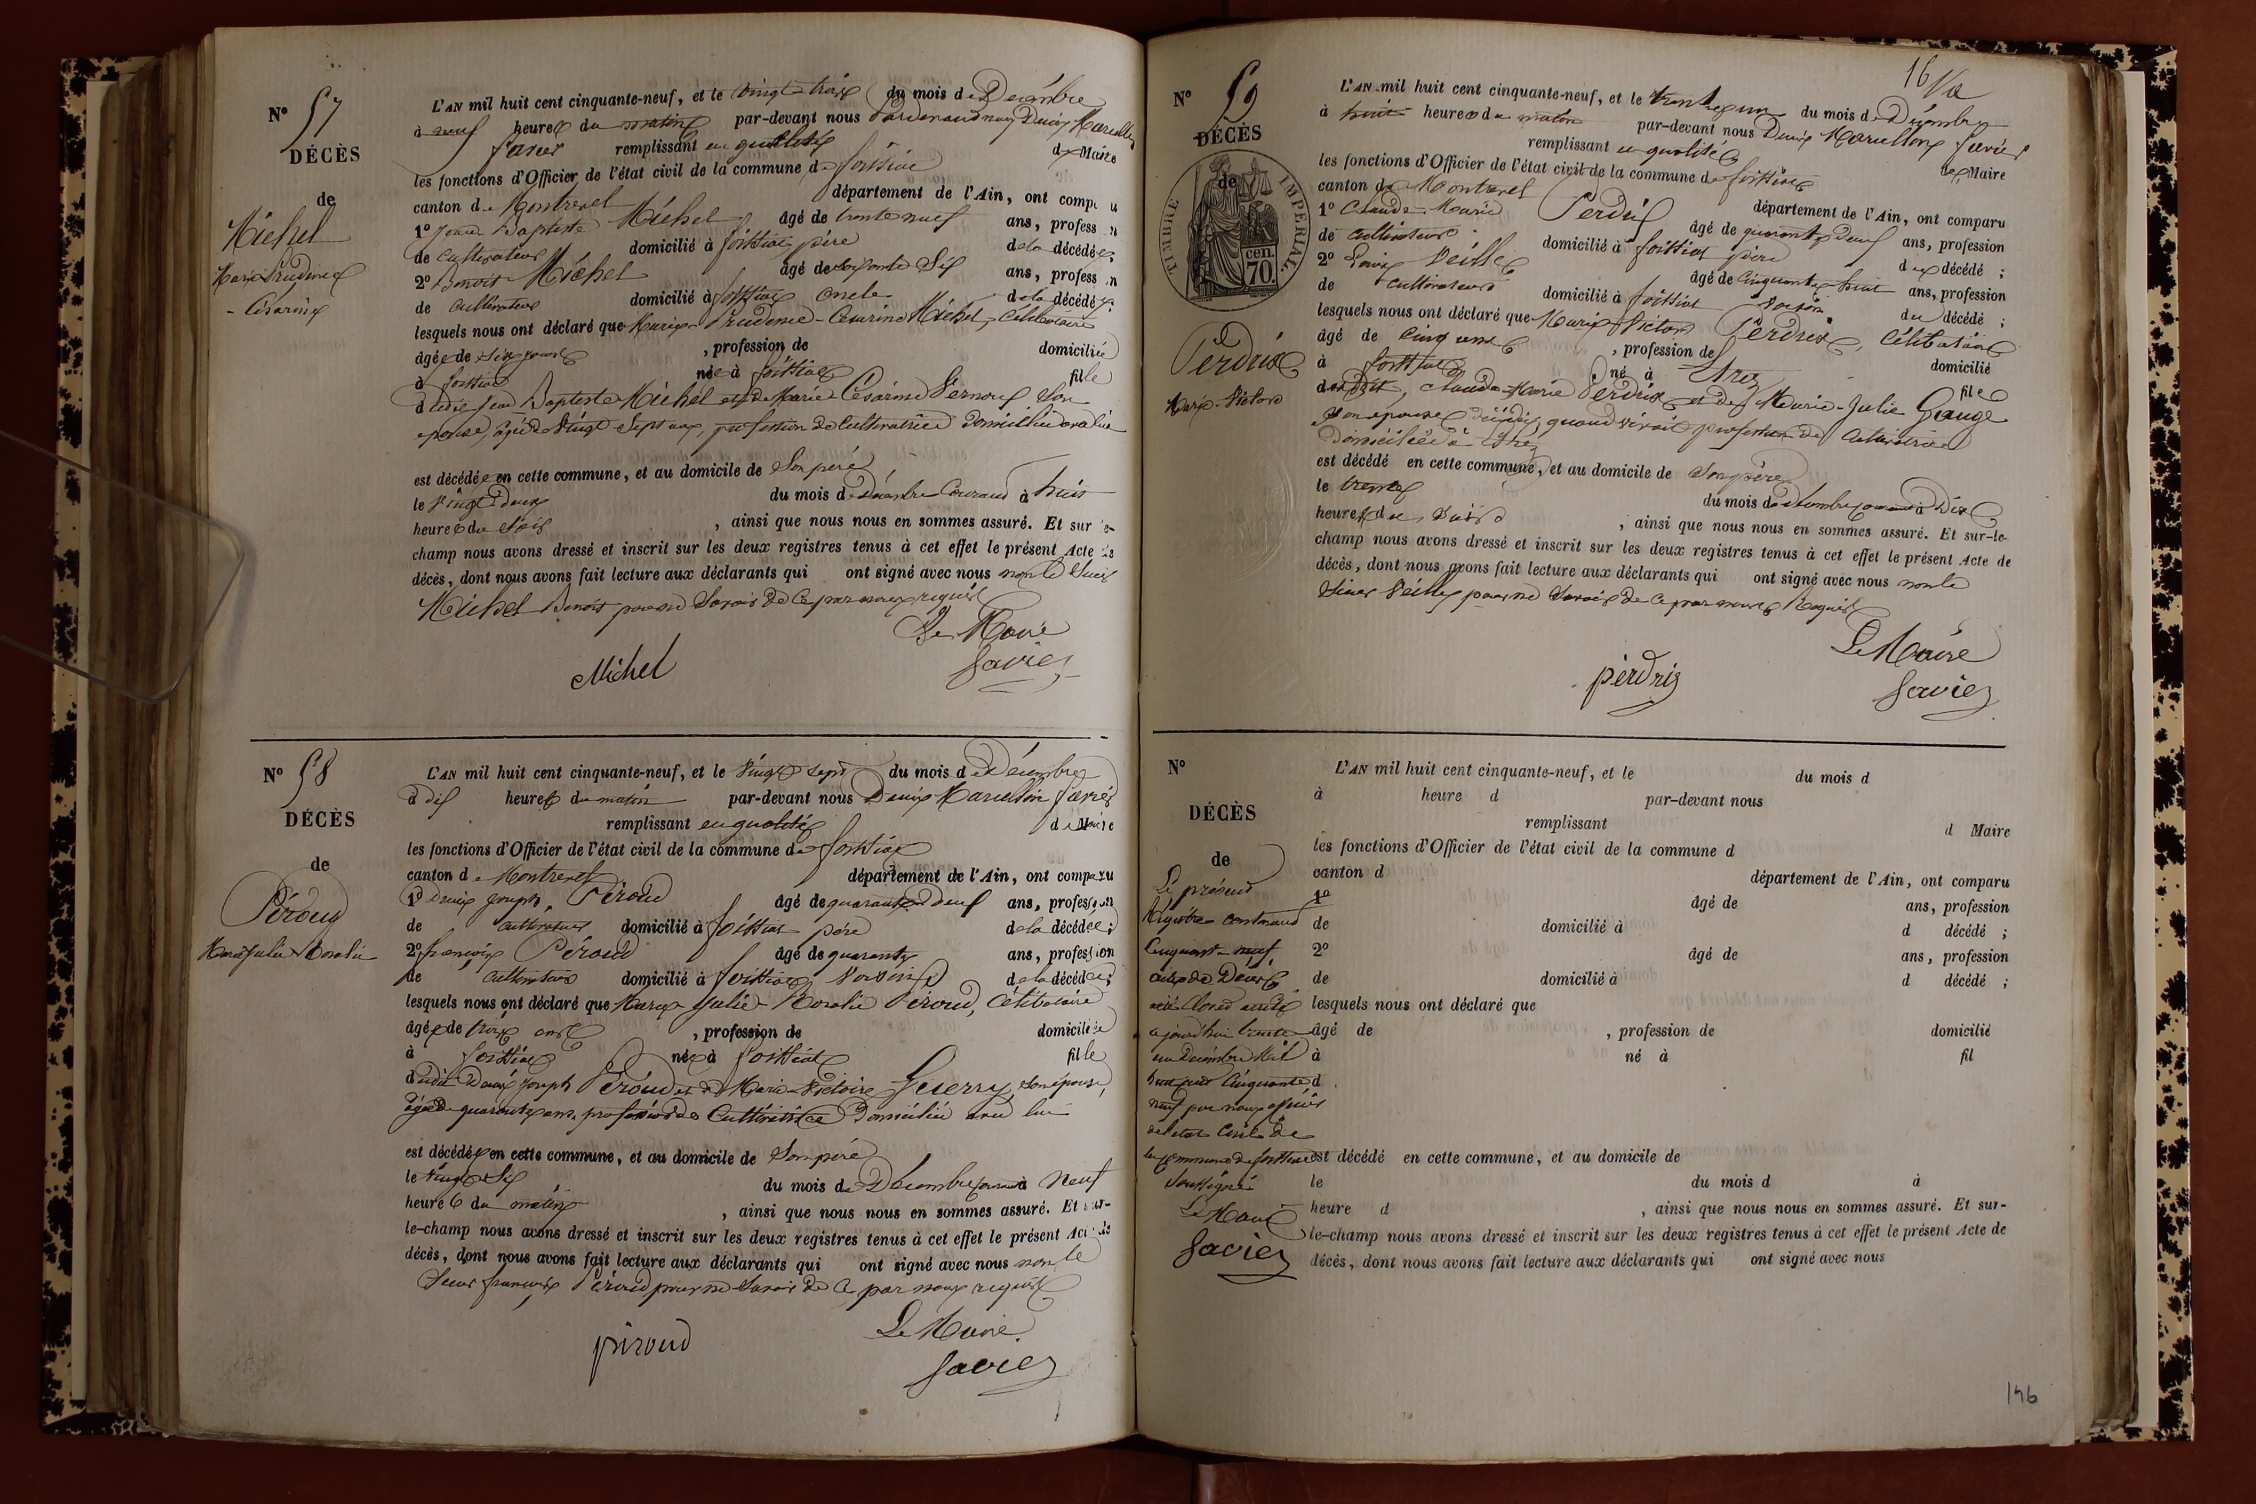 N° 57
DÉCÈS
de
Michel
Marie Prudence
- Césarine
L'AN mil huit cent cinquante-neuf, et le vingt trois du mois de Décembre
à neuf heures du matin par-devant nous Denis Marcellin
Favier remplissant en qualité de Maire
les fonctions d'Officier de l'état civil de la commune de foissiat
canton de Montrevel département de l'Ain, ont comparu
1° Jean Baptiste Michel âgé de trente neuf ans, profession
de cultivateur domicilié à foissiat père de la décédée;
2° Benoit Michel âgé de soixante six ans, profession
de cultivateur domicilié à foissiat oncle de la décédée;
lesquels nous ont déclaré que Marie Prudence-Césarine Michel, Célibataire
âgée de six jours, profession de domiciliée
à foissiat née à foissiat fille
dudit Jean Baptiste Michel et de Marie Césarine Pernoux son
épouse, âgée de Vingt sept ans, profession de Cultivatrice domiciliée avec lui
est décédée en cette commune, et au domicile de Son père
le Vingt Deux du mois de Décembre Courant à huit
heures du Soir, ainsi que nous nous en sommes assuré. Et sur-le-
champ nous avons dressé et inscrit sur les deux registres tenus à cet effet le présent Acte de
décès, dont nous avons fait lecture aux déclarants qui ont signé avec nous non le Sieur
Michel Benoit pour ne Savoir de Ce par nous requis
Le Maire
Michel Favier
N° 58
DÉCÈS
de
Péroud
Marie Julie Rosalie
L'AN mil huit cent cinquante-neuf, et le Vingt sept du mois de Décembre
à dix heures du matin par-devant nous Denis Marcellin favier
remplissant en qualité de Maire
les fonctions d'Officier de l'état civil de la commune de foissiat
canton de Montrevel département de l'Ain, ont comparu
1° Denis Joseph Péroud âgé de quarante deux ans, profession
de cultivateur domicilié à foissiat père de la décédée;
2° françois Péroud âgé de quarante ans, profession
de cultivateur domicilié à foissiat voisin de la décédée;
lesquels nous ont déclaré que Marie Julie Rosalie Péroud, Célibataire
âgée de trois ans, profession de domiciliée
à foissiat née à foissiat fille
dudit Denis Joseph Péroud et de Marie-Victoire Guerry, son épouse,
âgée de quarante ans, profession de Cultivatrice domiciliée avec lui
est décédée en cette commune, et au domicile de Son père
le Vingt Six du mois de Décembre courant à Neuf
heures du matin, ainsi que nous nous en sommes assuré. Et sur-
le-champ nous avons dressé et inscrit sur les deux registres tenus à cet effet le présent Acte de
décès, dont nous avons fait lecture aux déclarants qui ont signé avec nous non le
Sieur françois Péroud pour ne Savoir de Ce par nous requis
Le Maire
piroud Favier
16
N° 59
DÉCÈS
de
TIMBRE IMPERIAL
70 cen.
Perdrix
Marie-Victor
L'AN mil huit cent cinquante-neuf, et le trente un du mois de Décembre
à huit heures du matin par-devant nous Denis Marcellin favier
remplissant en qualité de Maire
les fonctions d'Officier de l'état civil de la commune de foissiat
canton de Montrevel département de l'Ain, ont comparu
1° Claude-Marie Perdrix âgé de quarante deux ans, profession
de cultivateur domicilié à foissiat père du décédé;
2° Louis Veille âgé de Cinquante huit ans, profession
de cultivateur domicilié à foissiat voisin du décédé;
lesquels nous ont déclaré que Marie Victor Perdrix, Célibataire
âgé de cinq ans, profession de domicilié
à foissiat né à Étrez fils
dudit, Claude-Marie Perdrix et de Marie-Julie Gauge
Son épouse décédée, quand vivait profession de Cultivatrice
Domiciliée à Étrez
est décédé en cette commune, et au domicile de Son père
le trente du mois de décembre courant à Dix
heures du Soir, ainsi que nous nous en sommes assuré. Et sur-le-
champ nous avons dressé et inscrit sur les deux registres tenus à cet effet le présent Acte de
décès, dont nous avons fait lecture aux déclarants qui ont signé avec nous non le
Sieur Veille pour ne Savoir de Ce par nous Requis
Le Maire
perdrix Favier
N°
DÉCÈS
de
Le présent
Régistre contenant
Cinquante-neuf
actes de Décès
été Clos et arrêté
ajourd'hui trente
un Décembre Mil
huit cent Cinquante
neuf par nous officier
de l'etat Civil de
la commune de foissiat
soussigné
Le Maire
Favier
L'AN mil huit cent cinquante-neuf, et le du mois d
à heure d par-devant nous
remplissant d Maire
les fonctions d'Officier de l'état civil de la commune d
canton d département de l'Ain, ont comparu
1° âgé de ans, profession
de domicilié à d décédé ;
2° âgé de ans, profession
de domicilié à d décédé ;
lesquels nous ont déclaré que
âgé de , profession de domicilié
à né à fil
d
est décédé en cette commune, et au domicile de
le du mois d à
heure d , ainsi que nous nous en sommes assuré. Et sur-
le-champ nous avons dressé et inscrit sur les deux registres tenus à cet effet le présent Acte de
décès, dont nous avons fait lecture aux déclarants qui ont signé avec nous
146